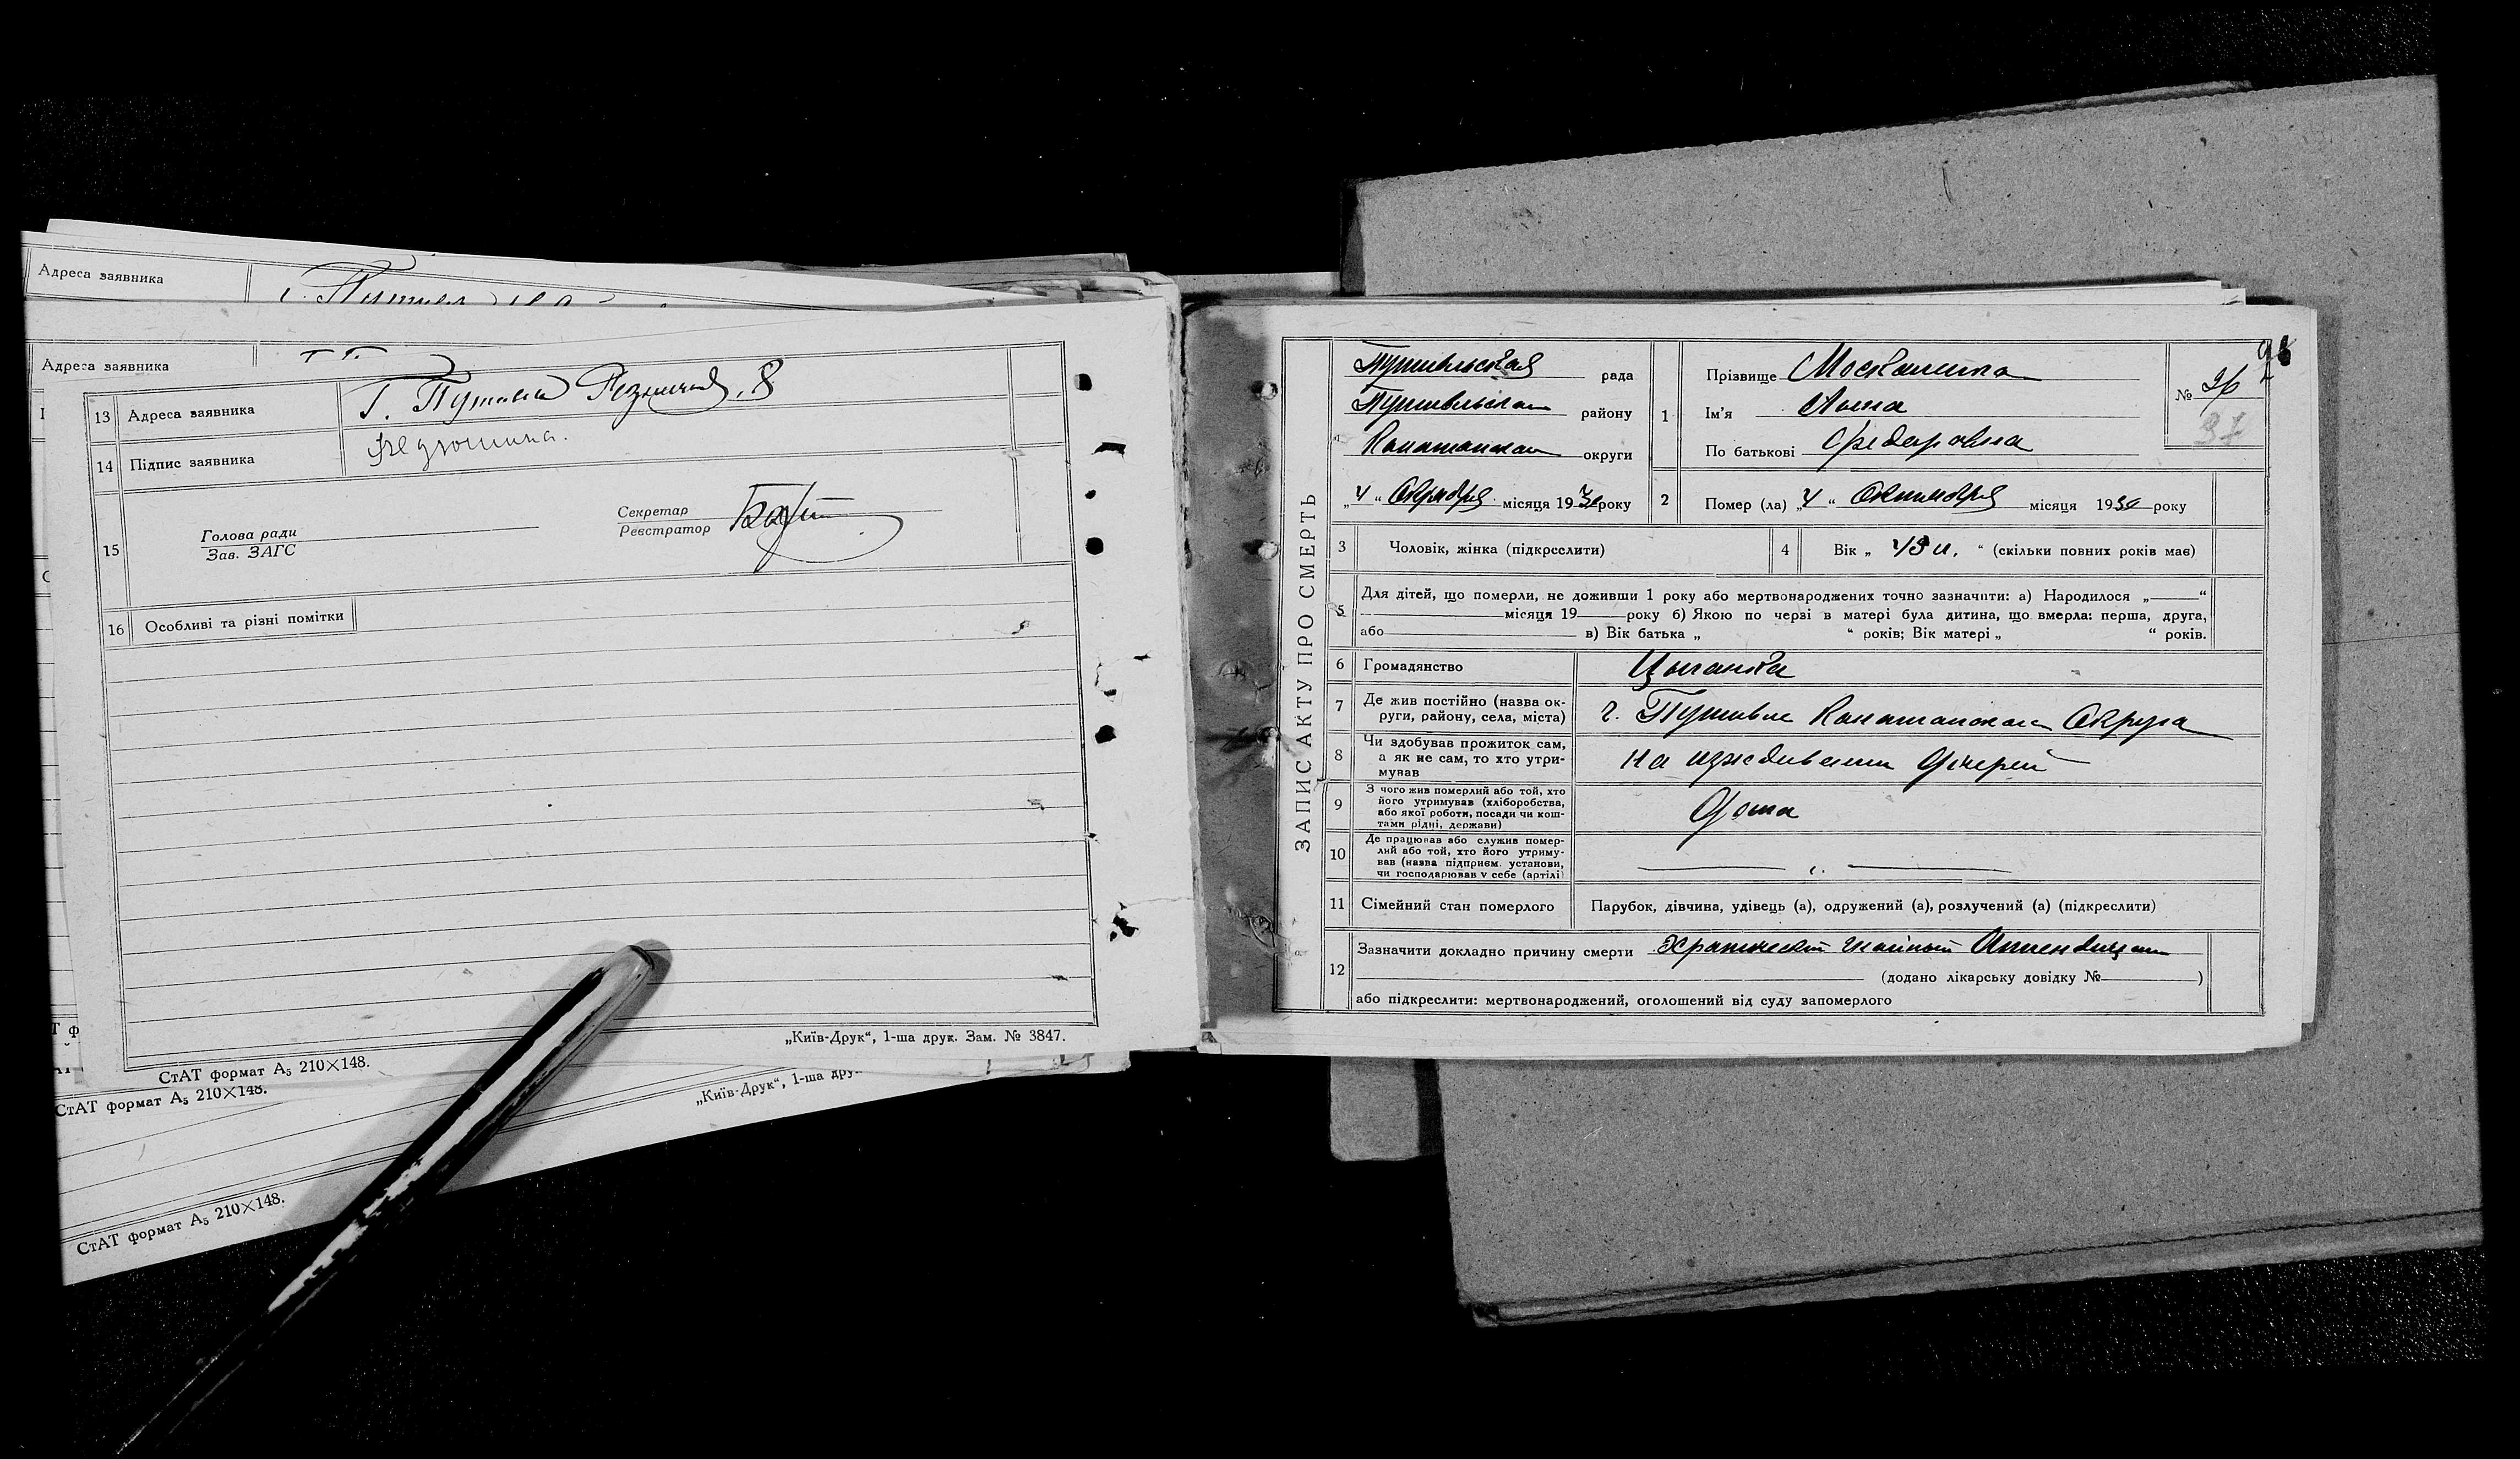 Адреса заявника
Адреса заявника
13 Адреса заявника Г. Путивль 8
14 Підпис заявника
15 Голова ради
Зав. ЗАГС
Секретар
Реєстратор
16 Особливі та різні помітки
„Київ-Друк“, 1-ша друк. Зам. № 3847.
СтАТ формат А₅ 210×148.
СтАТ формат А₅ 210×148.
„Київ-Друк“, 1-ша дру
СтАТ формат А₅ 210×148.
ЗАПИС АКТУ ПРО СМЕРТЬ
Путивльская рада
Путивльская району
Конотопская округи
„4“ Октября місяця 1930 року
1 Прізвище Москалина
Ім'я Анна
По батькові Федоровна
№ 26
37
2 Помер (ла) „4“ Октября місяця 1930 року
3 Чоловік, жінка (підкреслити)
4 Вік „ “ (скільки повних років має)
5 Для дітей, що померли, не доживши 1 року або мертвонароджених точно зазначити: а) Народилося „ “
місяця 19 року б) Якою по черзі в матері була дитина, що вмерла: перша, друга,
або в) Вік батька „ “ років; Вік матері „ “ років.
6 Громадянство Цыганка
7 Де жив постійно (назва ок-
руги, району, села, міста) г. Путивль Конотопская Округа
8 Чи здобував прожиток сам,
а як не сам, то хто утри-
мував На иждивении дочерей
9 З чого жив померлий або той, хто
його утримував (хліборобства,
або якої роботи, посади чи кош-
тами рідні, держави) Дома
10 Де працював або служив помер-
лий або той, хто його утриму-
вав (назва підприєм. установи,
чи господарював у себе (артілі)
11 Сімейний стан померлого Парубок, дівчина, удівець (а), одружений (а), розлучений (а) (підкреслити)
12 Зазначити докладно причину смерти Хранический гнойный Аппендицит
(додано лікарську довідку № )
або підкреслити: мертвонароджений, оголошений від суду запомерлого